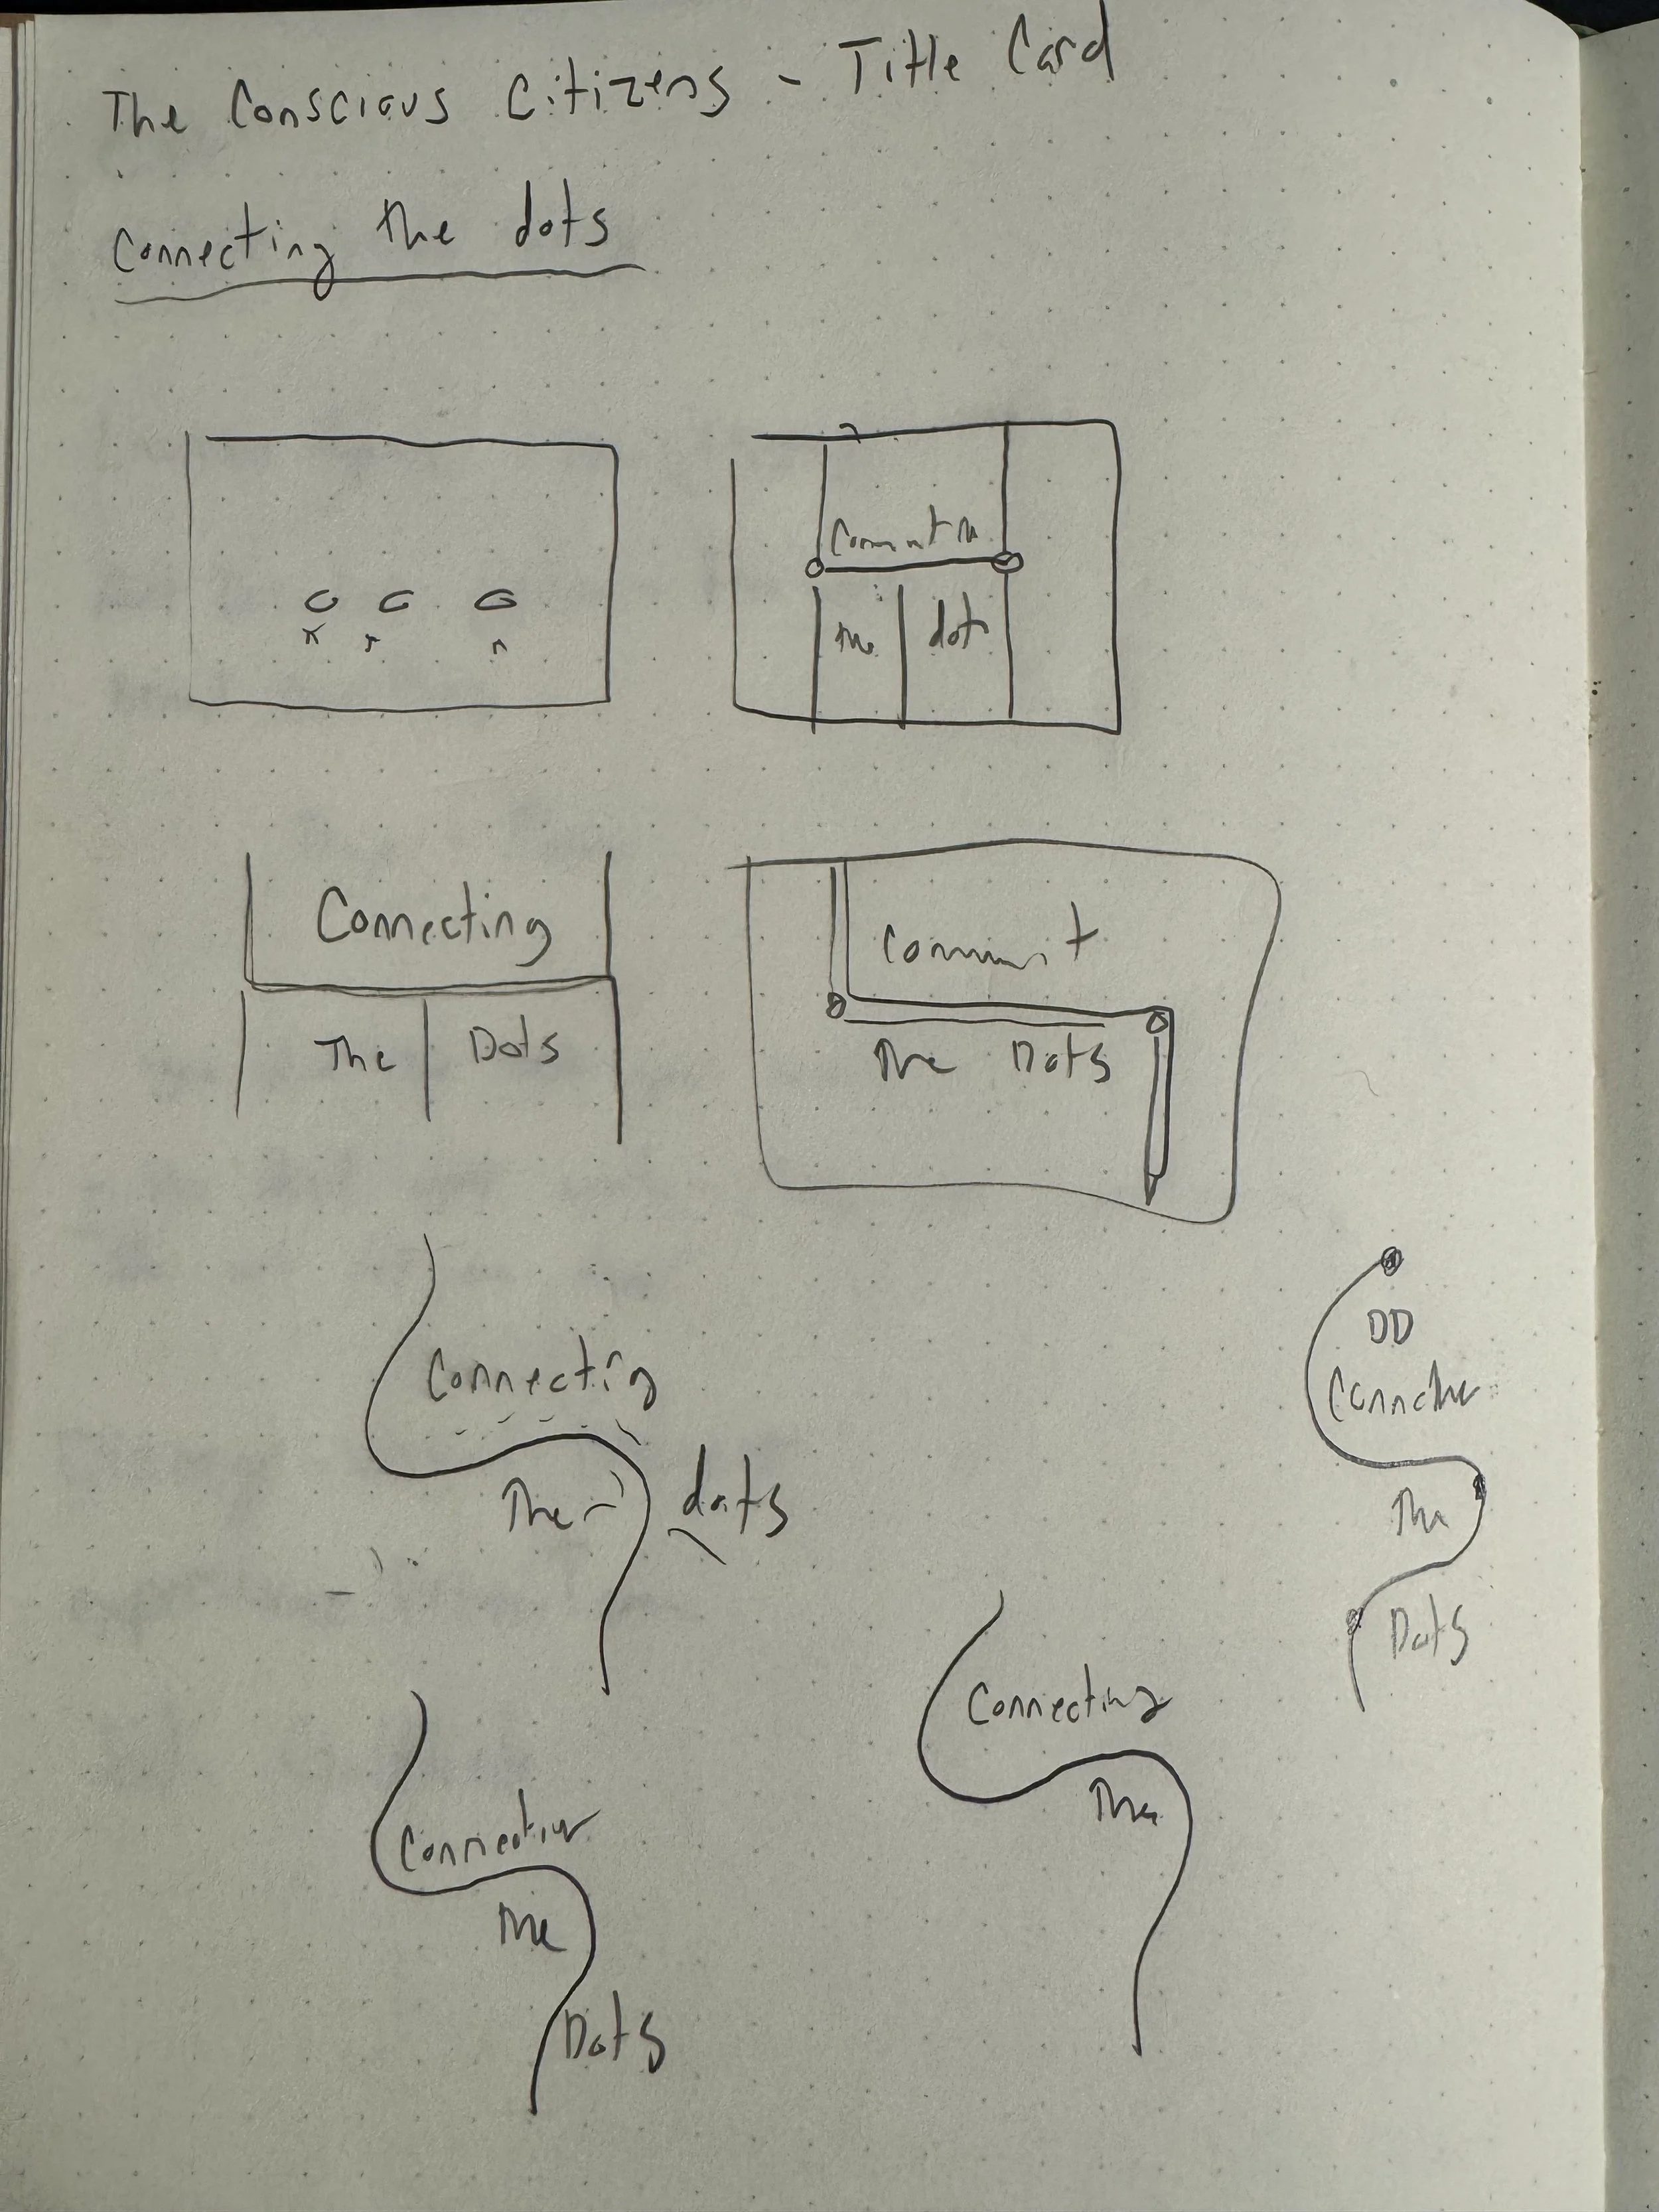 The Conscious Citizens - Title Card
Connecting the dots
the dots
Connecting
The Dots
The Dots
Connecting
The dots
DD
The
Dots
Connecting
The
The
Dots